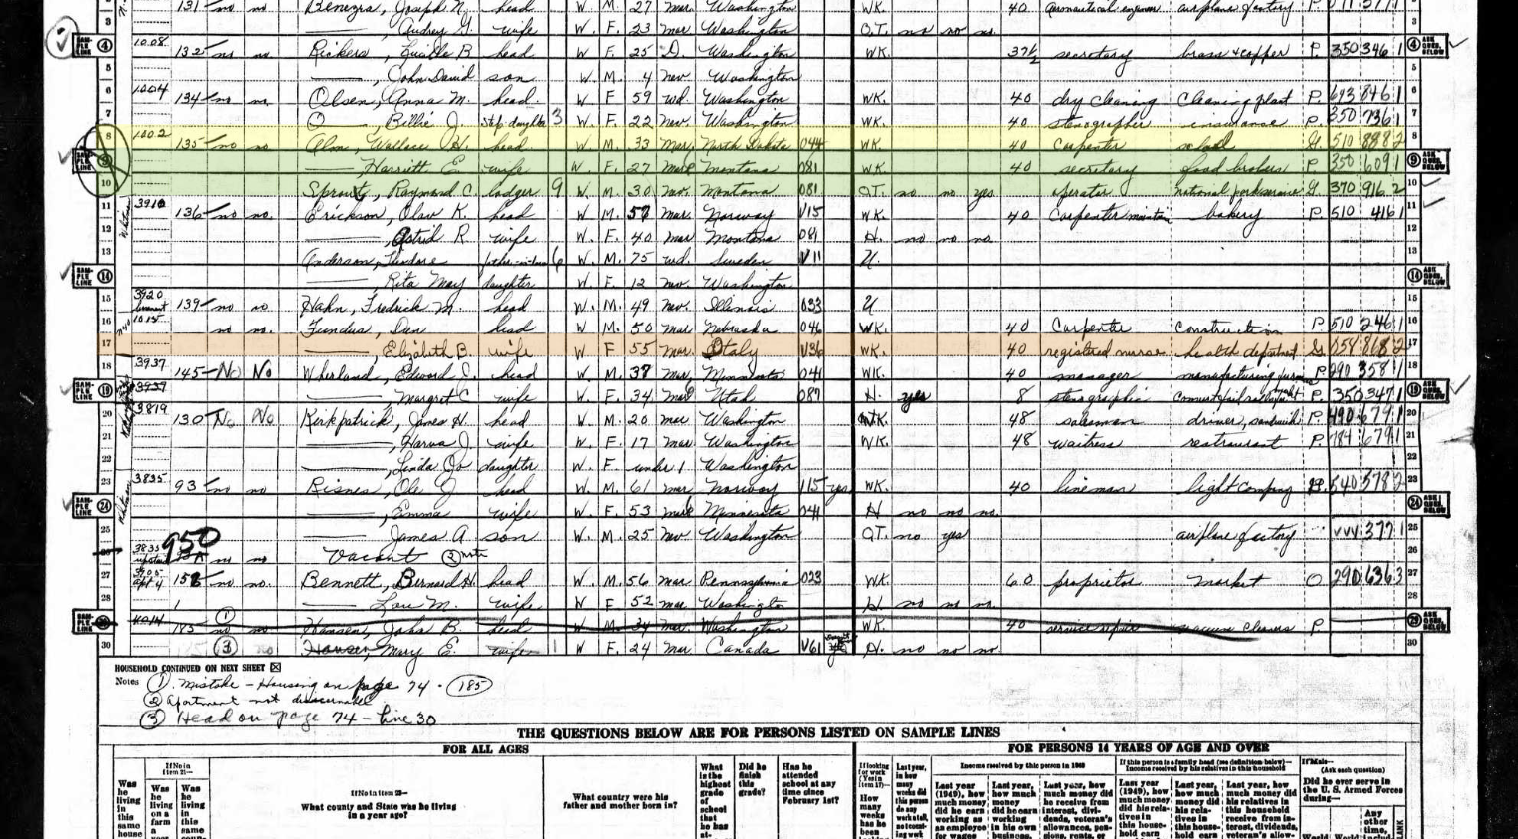 131 no no Benezra, Joseph N. head W. M. 27 Mar Washington WK. 40 aeronautical engineer airplane factory P.
3 ———, Audrey G. wife W. F. 23 Mar Washington OT. no no no 3
SAMPLE LINE 4 1008 132 no no Rickers, Lucille B. head W. F. 25 D. Washington WK. 37½ secretary brass & copper P. 350 346 1 4 ASK QUES. BELOW
5 ———, John David son W. M. 4 Nev Washington 5
6 1004 134 no no Olsen, Anna M. head W F 59 wd. Washington WK. 40 dry cleaning Cleaning plant P. 693 846 1 6
7 O—— Billie J. Step daughter 3 W. F. 22 Nev. Washington WK. 40 stenographer insurance P. 350 736 1 7
8 1002 135 no no Alm, Wallace H. head W. M. 33 Mar. North Dakota 044 WK. 40 Carpenter school G. 510 888 2 8
SAMPLE LINE 9 ———, Harriett E. wife W. F. 27 Mar Montana 081 WK. 40 secretary food brokers P. 350 609 1 9 ASK QUES. BELOW
10 Sprout, Raymond C. lodger 9 W. M. 30 Nev. Montana 081 OT. no no yes operator national park service G. 370 916 2 10
11 3910 136 no no Erickson, Olav K. head W M. 57 mar. Norway V15 WK. 40 Carpenter maintain bakery P. 510 416 1 11
12 ———, Astrid R wife W. F. 40 mar Montana 081 H. no no no 12
13 Anderson, Theodore father-in-law 6 W. M. 75 wd. Sweden V11 U. 13
SAMPLE LINE 14 ——— Rita May daughter W. F. 12 Nev. Washington 14 ASK QUES. BELOW
15 3920 basement 139 no no Hahn, Fredrick M. head W. M. 49 Nev. Illinois 033 U 15
16 1015 no no. Fundus, Dan head W M. 50 mar Nebraska 046 WK. 40 Carpenter Construction P. 510 246 1 16
17 ———, Elizabeth B. wife W F 55 Mar. Italy V36 WK. 40 registered nurse health department G 058 868 2 17
18 3937 145 No No Wherland, Edward J. head W M. 38 Mar. Minnesota 041 WK. 40 manager manufacturing P. 290 358 1 18
SAMPLE LINE 19 3937 ———, Margaret C wife W. F. 34 Mar Utah 087 H. yes 8 stenographic P. 350 347 1 19 ASK QUES. BELOW
20 3819 130 No No Kirkpatrick, James H. head W M 20 mar Washington WK. 48 salesman driver, sandwich P. 490 679 1 20
21 ———, Harva J. wife W F. 17 Mar. Washington WK. 48 waitress restraurant P. 784 679 1 21
22 ———, Linda Jo daughter W F. under 1 Washington 22
23 3835 93 no no Risnes, Ole J head W. M. 61 mar Norway V15 yes WK. 40 lineman light Company 540 578 2 23
SAMPLE LINE 24 ———, Emma wife W. F. 53 mar Minnesota 041 H no no no. 24 ASK QUES. BELOW
25 ——— James A son W. M. 25 Nev Washington OT. no yes airplane factory vvv 377 1 25
950
26 3835 upstairs no no Vacant ② note 26
27 3905 apt 4 158 no no. Bennett, Bernard H. head W. M. 56 mar Pennsylvania 023 WK. 60 proprietor market O 290 636 3 27
28 ——— Lou M. wife W F. 52 mar. Washington H. no no no. 28
SAMPLE LINE 29 4014 185 ① no no. Hansen, John B. head W M 34 Mar. Washington WK. 40 service repair vacuum cleaners P. 29 ASK QUES. BELOW
30 ③ no Hansen, Mary E. wife 1 W F. 24 Mar Canada V61 H. no no no 30
HOUSEHOLD CONTINUED ON NEXT SHEET ☒
Notes ① Mistake - Housing on page 74 - 185
② Apartment not discernable
③ Head on page 74 - line 30
THE QUESTIONS BELOW ARE FOR PERSONS LISTED ON SAMPLE LINES
FOR ALL AGES FOR PERSONS 14 YEARS OF AGE AND OVER
Was he living in this same house
If No in item 21—
Was he living on a farm a
Was he living in this same
If No in item 23—
What county and State was he living in a year ago?
What country were his father and mother born in?
What is the highest grade of school that he has at-
Did he finish this grade?
Has he attended school at any time since February 1st?
If looking for work (Yes in item 17)—
How many weeks has he been
Last year, in how many weeks did this person do any work at all, not
Income received by this person in 1949
Last year (1949), how much money did he earn working as an employee for wages
Last year, how much money did he earn working in his own business,
Last year, how much money did he receive from interest, dividends, veteran's allowances, pensions, rents, or
If this person is a family head (see definition below)—
Income received by his relatives in this household
Last year (1949), how much money did his relatives in this household earn
Last year, how much money did his relatives in this household earn
Last year, how much money did his relatives in this household receive from interest, dividends, veteran's
If Male—
(Ask each question)
Did he ever serve in the U. S. Armed Forces during—
World World Any other time,